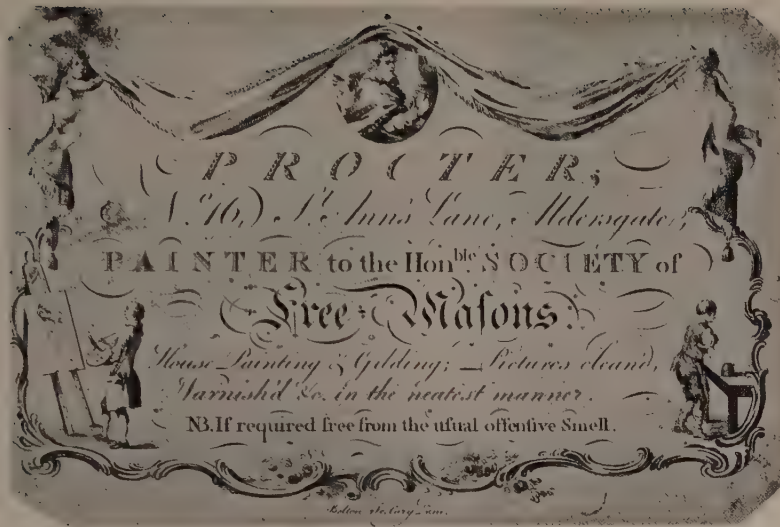 PROCTER,
(No. 16,) St. Ann's Lane, Aldersgate,
PAINTER to the Honble. SOCIETY of
Free-Maſons.
House Painting & Gilding; Pictures cleand,
Varnish'd &c. in the neatest manner.
NB. If required free from the uſual offenſive Smell.